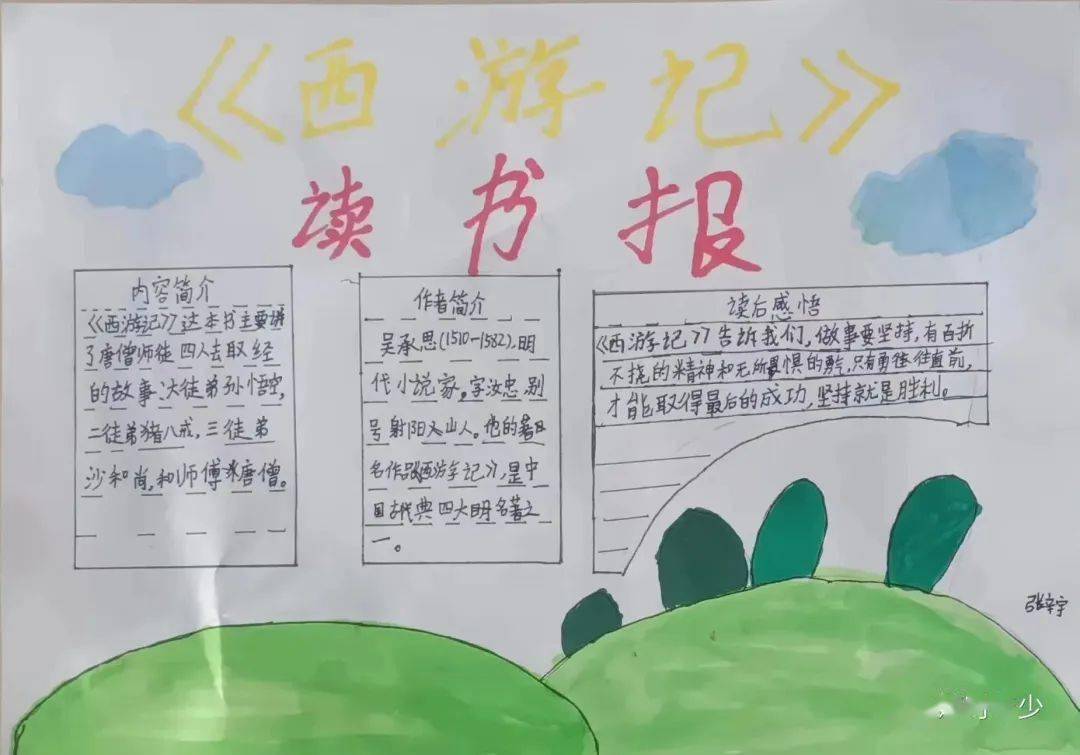 《西游记》
读书报
内容简介
《西游记》这本书主要讲
了唐僧师徒四人去取经
的故事:大徒弟孙悟空,
二徒弟猪八戒,三徒弟
沙和尚,和师傅唐僧。
作者简介
吴承思(1510-1582),明
代小说家。字汝忠,别
号射阳山人。他的著
名作品《西游记》,是中
国古典四大明名著之
一。
读后感悟
《西游记》告诉我们,做事要坚持,有百折
不挠的精神和无所畏惧的勇气,只有勇往直前,
才能取得最后的成功,坚持就是胜利。
张宇
少